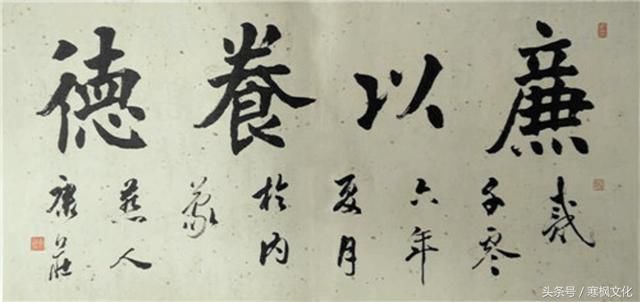 廉以養德
貳
千零
六年
夏月
於内
蒙
燕人
康莊
头条号／寒枫文化